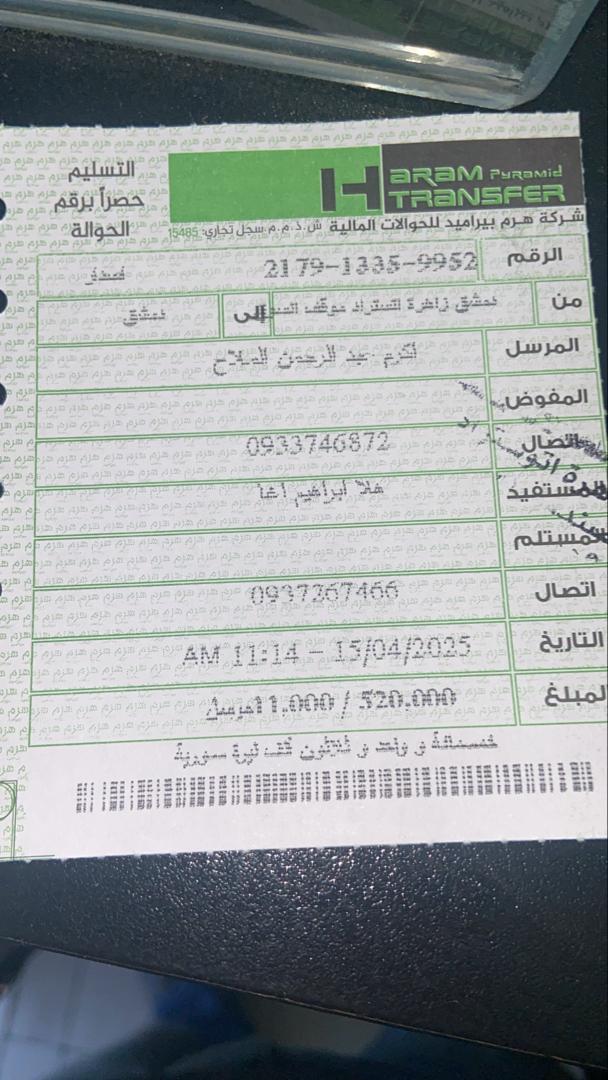 التسليم
حصراً برقم
الحوالة
HARAM PYRAMID
TRANSFER
شركة هرم بيراميد للحوالات المالية ش.ذ.م.م سجل تجاري: 15485
الرقم 2179-1335-9952
من دمشق زاهرة اتستراد موقف إلى دمشق
المرسل اكرم عبد الرحمن الملاح
المفوض
اتصال 0933746872
المستفيد هلا ابراهيم اغا
المستلم
اتصال 0937267466
التاريخ 15/04/2025 - 11:14 AM
المبلغ 520.000 / 11.000مرسل
خمسمائة و واحد و ثلاثون ألف ليرة سورية